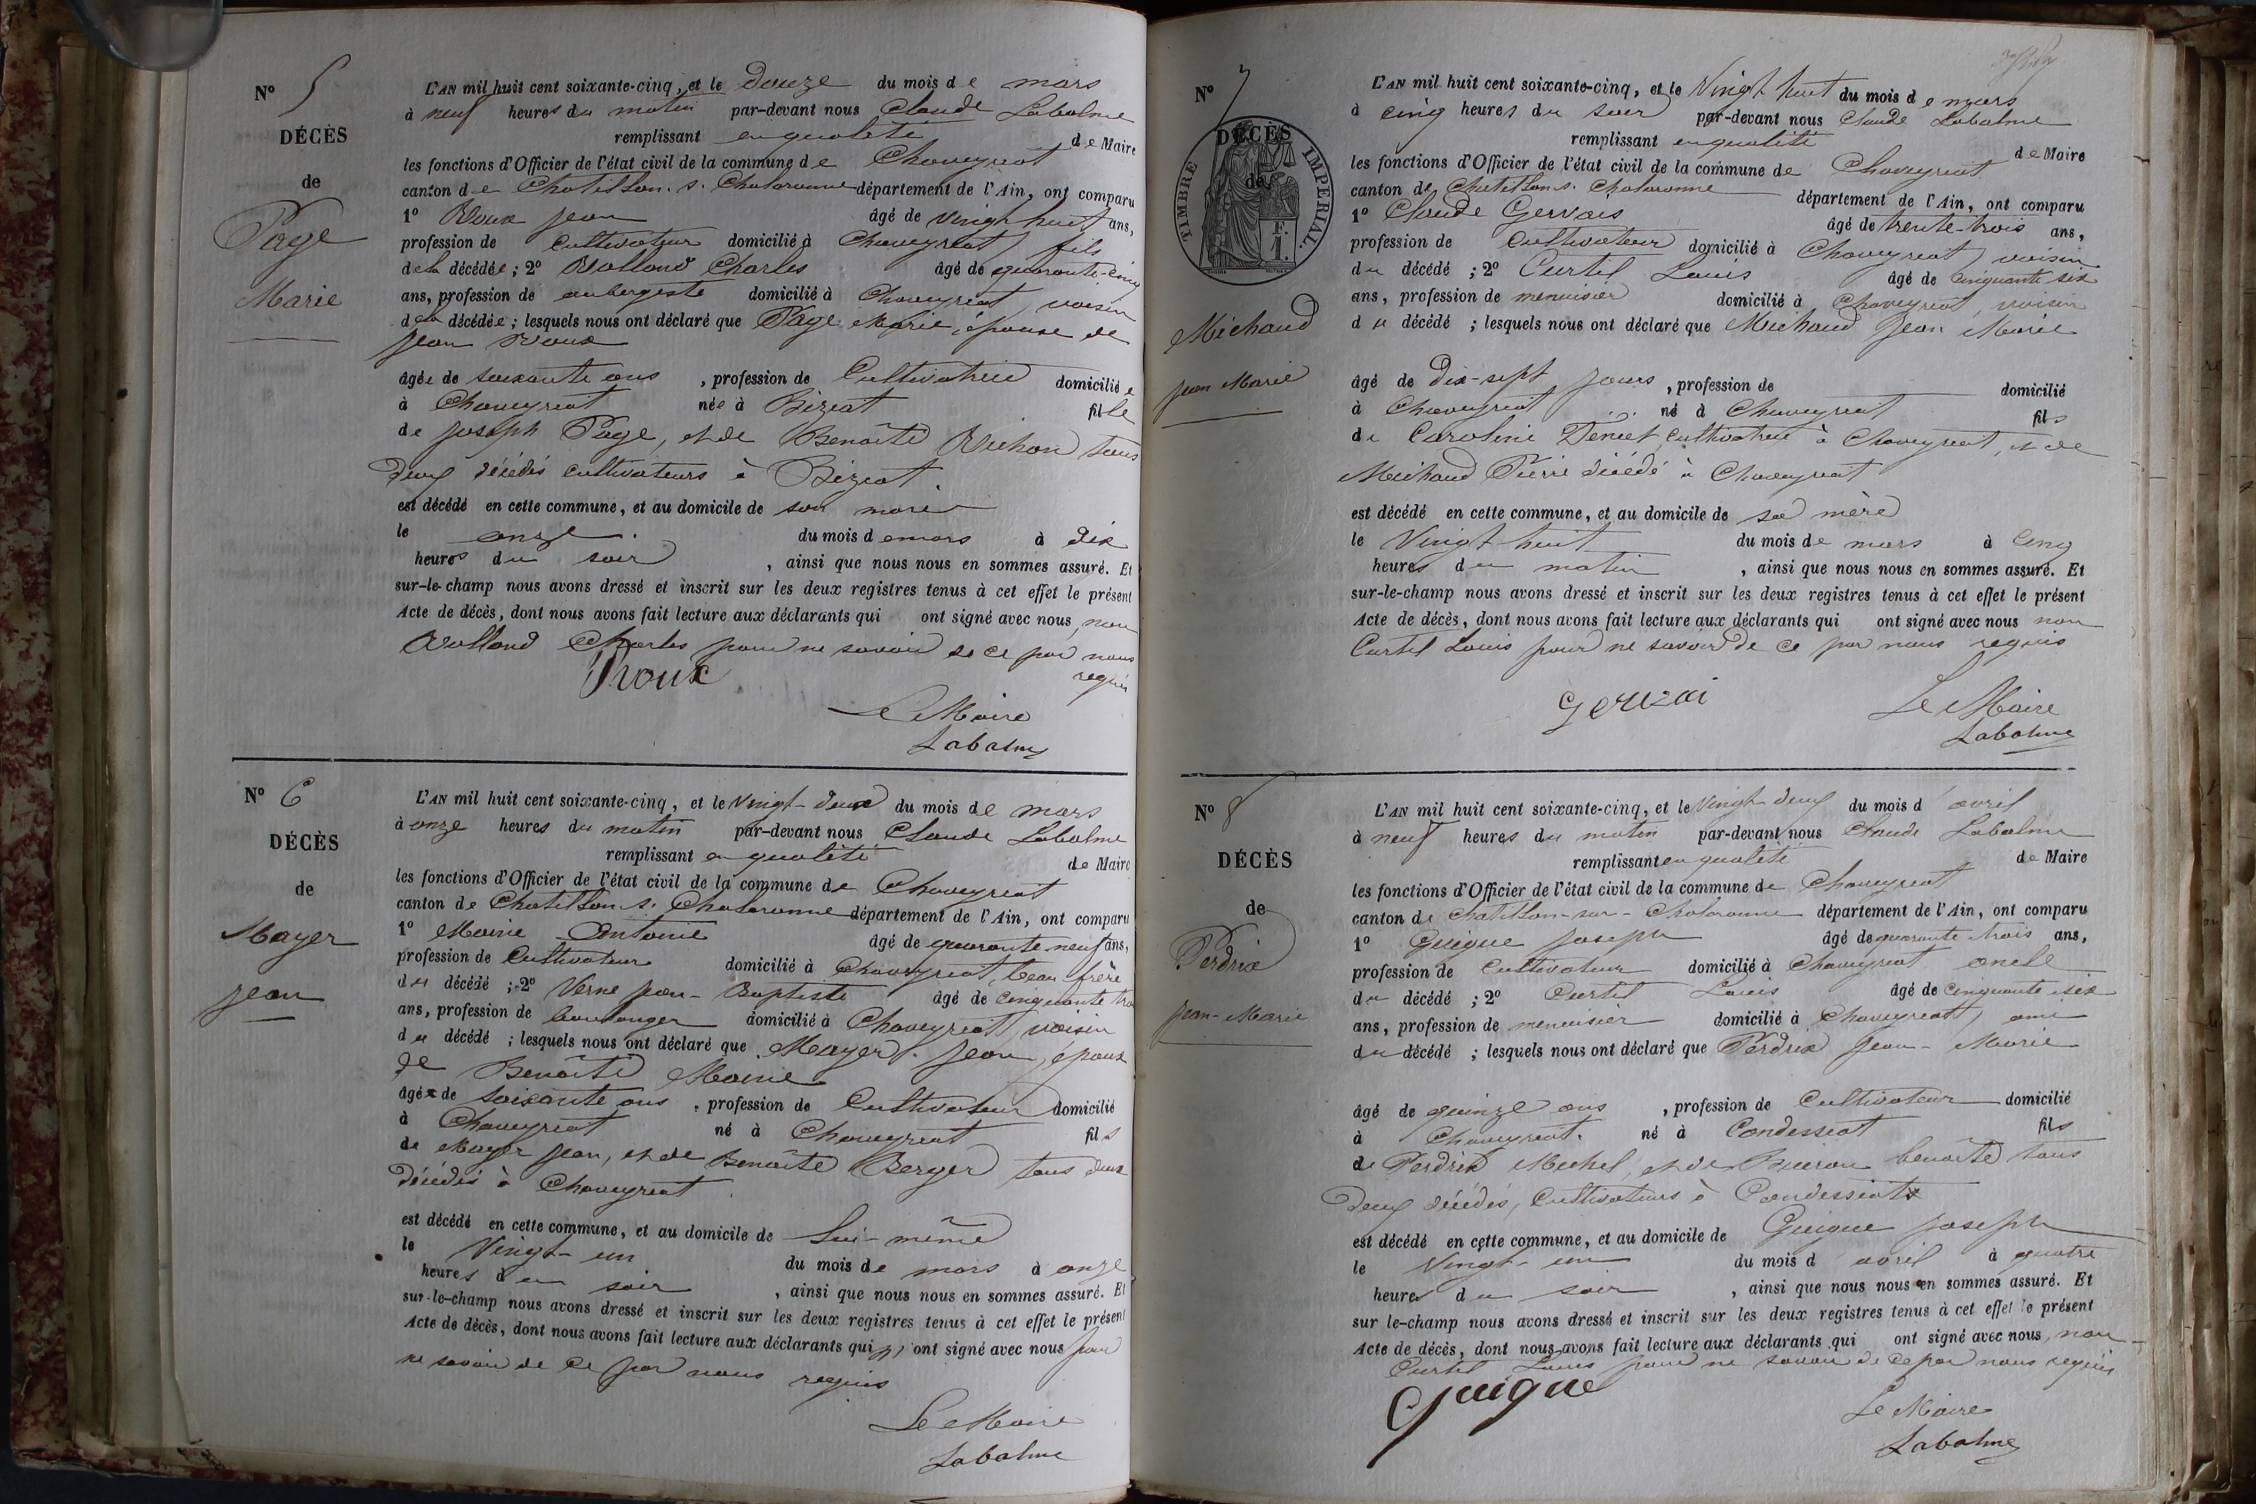 N° 5
DÉCÈS
de
Page
Marie
L'AN mil huit cent soixante-cinq, et le Douze du mois de mars
à neuf heures du matin par-devant nous Claude Labalme
remplissant en qualité de Maire
les fonctions d'Officier de l'état civil de la commune de Chaveyriat
canton de Chatillon s. Chalaronne département de l'Ain, ont comparu
1° Roux Jean âgé de vingt huit ans,
profession de Cultivateur domicilié à Chaveyriat, fils
de la décédée; 2° Rolland Charles âgé de quarante-cinq
ans, profession de aubergiste domicilié à Chaveyriat, voisin
de la décédée; lesquels nous ont déclaré que Page Marie, épouse de
Jean Roux
âgée de soixante ans, profession de Cultivatrice domiciliée
à Chaveyriat née à Biziat fille
de Joseph Page, et de Benoîte Richon tous
deux décédés cultivateurs à Biziat.
est décédé en cette commune, et au domicile de son mari
le onze du mois de mars à dix
heures du soir, ainsi que nous nous en sommes assuré. Et
sur-le-champ nous avons dressé et inscrit sur les deux registres tenus à cet effet le présent
Acte de décès, dont nous avons fait lecture aux déclarants qui ont signé avec nous, non
Rolland Charles pour ne savoir de ce par nous
requis
Roux
Le Maire
Labalme
N° 6
DÉCÈS
de
Mayer
Jean
L'AN mil huit cent soixante-cinq, et le Vingt-deux du mois de mars
à onze heures du matin par-devant nous Claude Labalme
remplissant en qualité de Maire
les fonctions d'Officier de l'état civil de la commune de Chaveyriat
canton de Chatillon s. Chalaronne département de l'Ain, ont comparu
1° Moine Antoine âgé de quarante-neuf ans,
profession de Cultivateur domicilié à Chaveyriat, beau frère
du décédé; 2° Verne Jean-Baptiste âgé de cinquante trois
ans, profession de boulanger domicilié à Chaveyriat, voisin
du décédé; lesquels nous ont déclaré que Mayer Jean, époux
de Benoîte Moine
âgé de soixante ans, profession de Cultivateur domicilié
à Chaveyriat né à Chaveyriat fils
de Mayer Jean, et de Benoîte Berger tous deux
décédés à Chaveyriat.
est décédé en cette commune, et au domicile de lui-même
le Vingt-un du mois de mars à onze
heures du soir, ainsi que nous nous en sommes assuré. Et
sur-le-champ nous avons dressé et inscrit sur les deux registres tenus à cet effet le présent
Acte de décès, dont nous avons fait lecture aux déclarants qui n' ont signé avec nous pour
ne savoir de ce par nous requis
Le Maire
Labalme
N° 7
DÉCÈS
de
TIMBRE IMPERIAL.
F. 1.
Michaud
Jean Marie
L'AN mil huit cent soixante-cinq, et le Vingt huit du mois de mars
à cinq heures du soir par-devant nous Claude Labalme
remplissant en qualité de Maire
les fonctions d'Officier de l'état civil de la commune de Chaveyriat
canton de Chatillon s. Chalaronne département de l'Ain, ont comparu
1° Claude Gervais âgé de trente-trois ans,
profession de Cultivateur domicilié à Chaveyriat, voisin
du décédé; 2° Curtil Louis âgé de cinquante six
ans, profession de menuisier domicilié à Chaveyriat, voisin
du décédé; lesquels nous ont déclaré que Michaud Jean Marie
âgé de dix-sept jours, profession de domicilié
à Chaveyriat né à Chaveyriat fils
de Caroline cultivatrice à Chaveyriat, et de
Michaud Pierre décédé à Chaveyriat
est décédé en cette commune, et au domicile de sa mère
le Vingt-huit du mois de mars à cinq
heures du matin, ainsi que nous nous en sommes assuré. Et
sur-le-champ nous avons dressé et inscrit sur les deux registres tenus à cet effet le présent
Acte de décès, dont nous avons fait lecture aux déclarants qui ont signé avec nous non
Curtil Louis pour ne savoir de ce par nous requis
Gervai
Le Maire
Labalme
N° 8
DÉCÈS
de
Perdrix
Jean-Marie
L'AN mil huit cent soixante-cinq, et le Vingt-deux du mois d'avril
à neuf heures du matin par-devant nous Claude Labalme
remplissant en qualité de Maire
les fonctions d'Officier de l'état civil de la commune de Chaveyriat
canton de Chatillon-sur-Chalaronne département de l'Ain, ont comparu
1° Guigue Joseph âgé de quarante trois ans,
profession de Cultivateur domicilié à Chaveyriat oncle
du décédé; 2° Curtil Louis âgé de cinquante six
ans, profession de menuisier domicilié à Chaveyriat, ami
du décédé; lesquels nous ont déclaré que Perdrix Jean-Marie
âgé de quinze ans, profession de Cultivateur domicilié
à Chaveyriat. né à Condessiat fils
de Perdrix Michel, et de benoîte tous
deux décédés, cultivateurs à Condessiat
est décédé en cette commune, et au domicile de Guigue Joseph
le Vingt-un du mois d'avril à quatre
heures du soir, ainsi que nous nous en sommes assuré. Et
sur le-champ nous avons dressé et inscrit sur les deux registres tenus à cet effet le présent
Acte de décès, dont nous avons fait lecture aux déclarants qui ont signé avec nous, non
Curtil Louis pour ne savoir de ce par nous requis
Guigue
Le Maire
Labalme